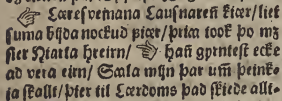 ☞ Læresveinana Lausnaren̄ kiær/liet
suma bijda nockud þiær/Prim took po mz
sier Hiarta hreirn/ ☞ han̄ gyrntest ecke
ad vera eirn/ Scala mijn par um̄ þeink-
ia skallt/Pter til Lærdoms pad skiede allt-